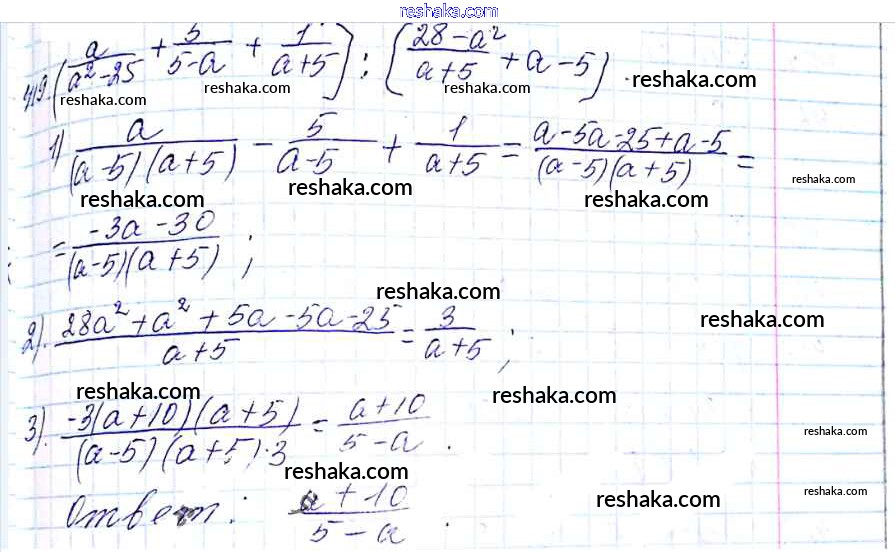 reshaka.com
419. (a/(a²-25) + 5/(5-a) + 1/(a+5)) : ((28-a²)/(a+5) + a-5)
reshaka.com reshaka.com reshaka.com reshaka.com reshaka.com
1) a/((a-5)(a+5)) - 5/(a-5) + 1/(a+5) = (a-5a-25+a-5)/((a-5)(a+5)) =
reshaka.com reshaka.com reshaka.com reshaka.com
= (-3a-30)/((a-5)(a+5)) ;
reshaka.com
2). (28a²+a²+5a-5a-25)/(a+5) = 3/(a+5) ;
reshaka.com
reshaka.com reshaka.com
3). (-3(a+10)(a+5))/((a-5)(a+5)·3) = (a+10)/(5-a) .
reshaka.com
reshaka.com reshaka.com reshaka.com
Ответ: (a+10)/(5-a) .